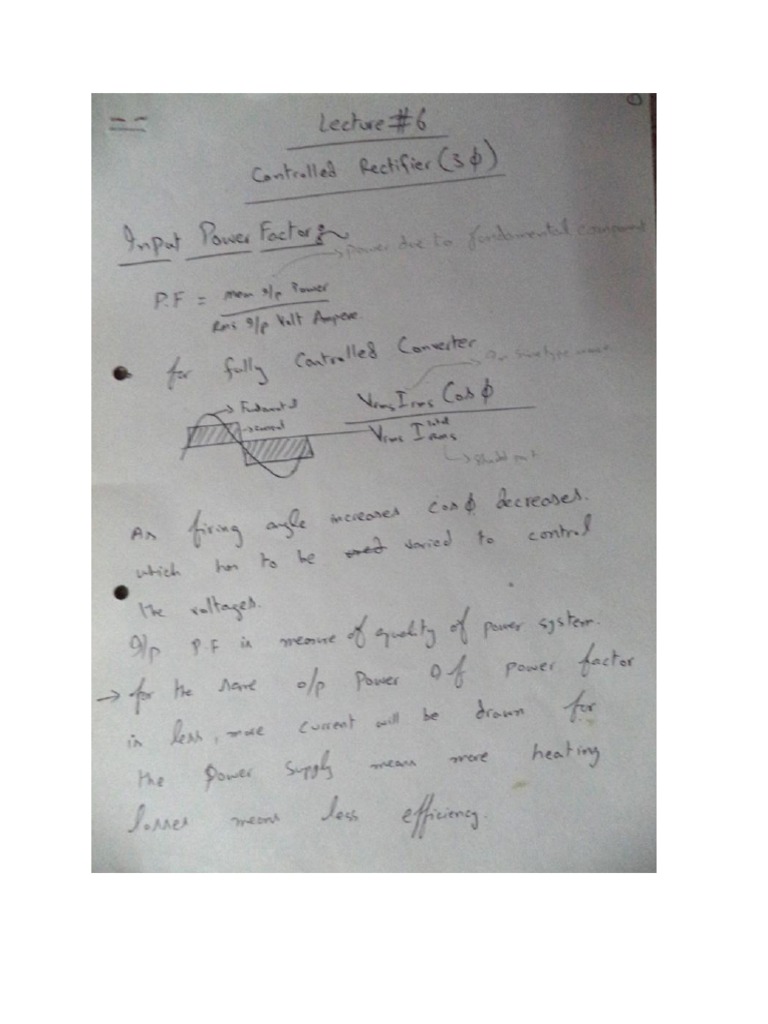 ①
Lecture #6
Controlled Rectifier (3 ϕ)
Input Power Factor :-
→ power due to fundamental component
P.F = mean I/p Power
Rms I/p Volt Ampere.
for fully Controlled Converter
→ Fundamental
→ current
Vrms Irms Cos ϕ
Vrms I total rms
As firing angle increases cos ϕ decreases.
which has to be varied to control
the voltages.
I/p P.F is measure of quality of power system.
→ for the same o/p Power If power factor
is less, more current will be drawn for
the power supply means more heating
losses means less efficiency.